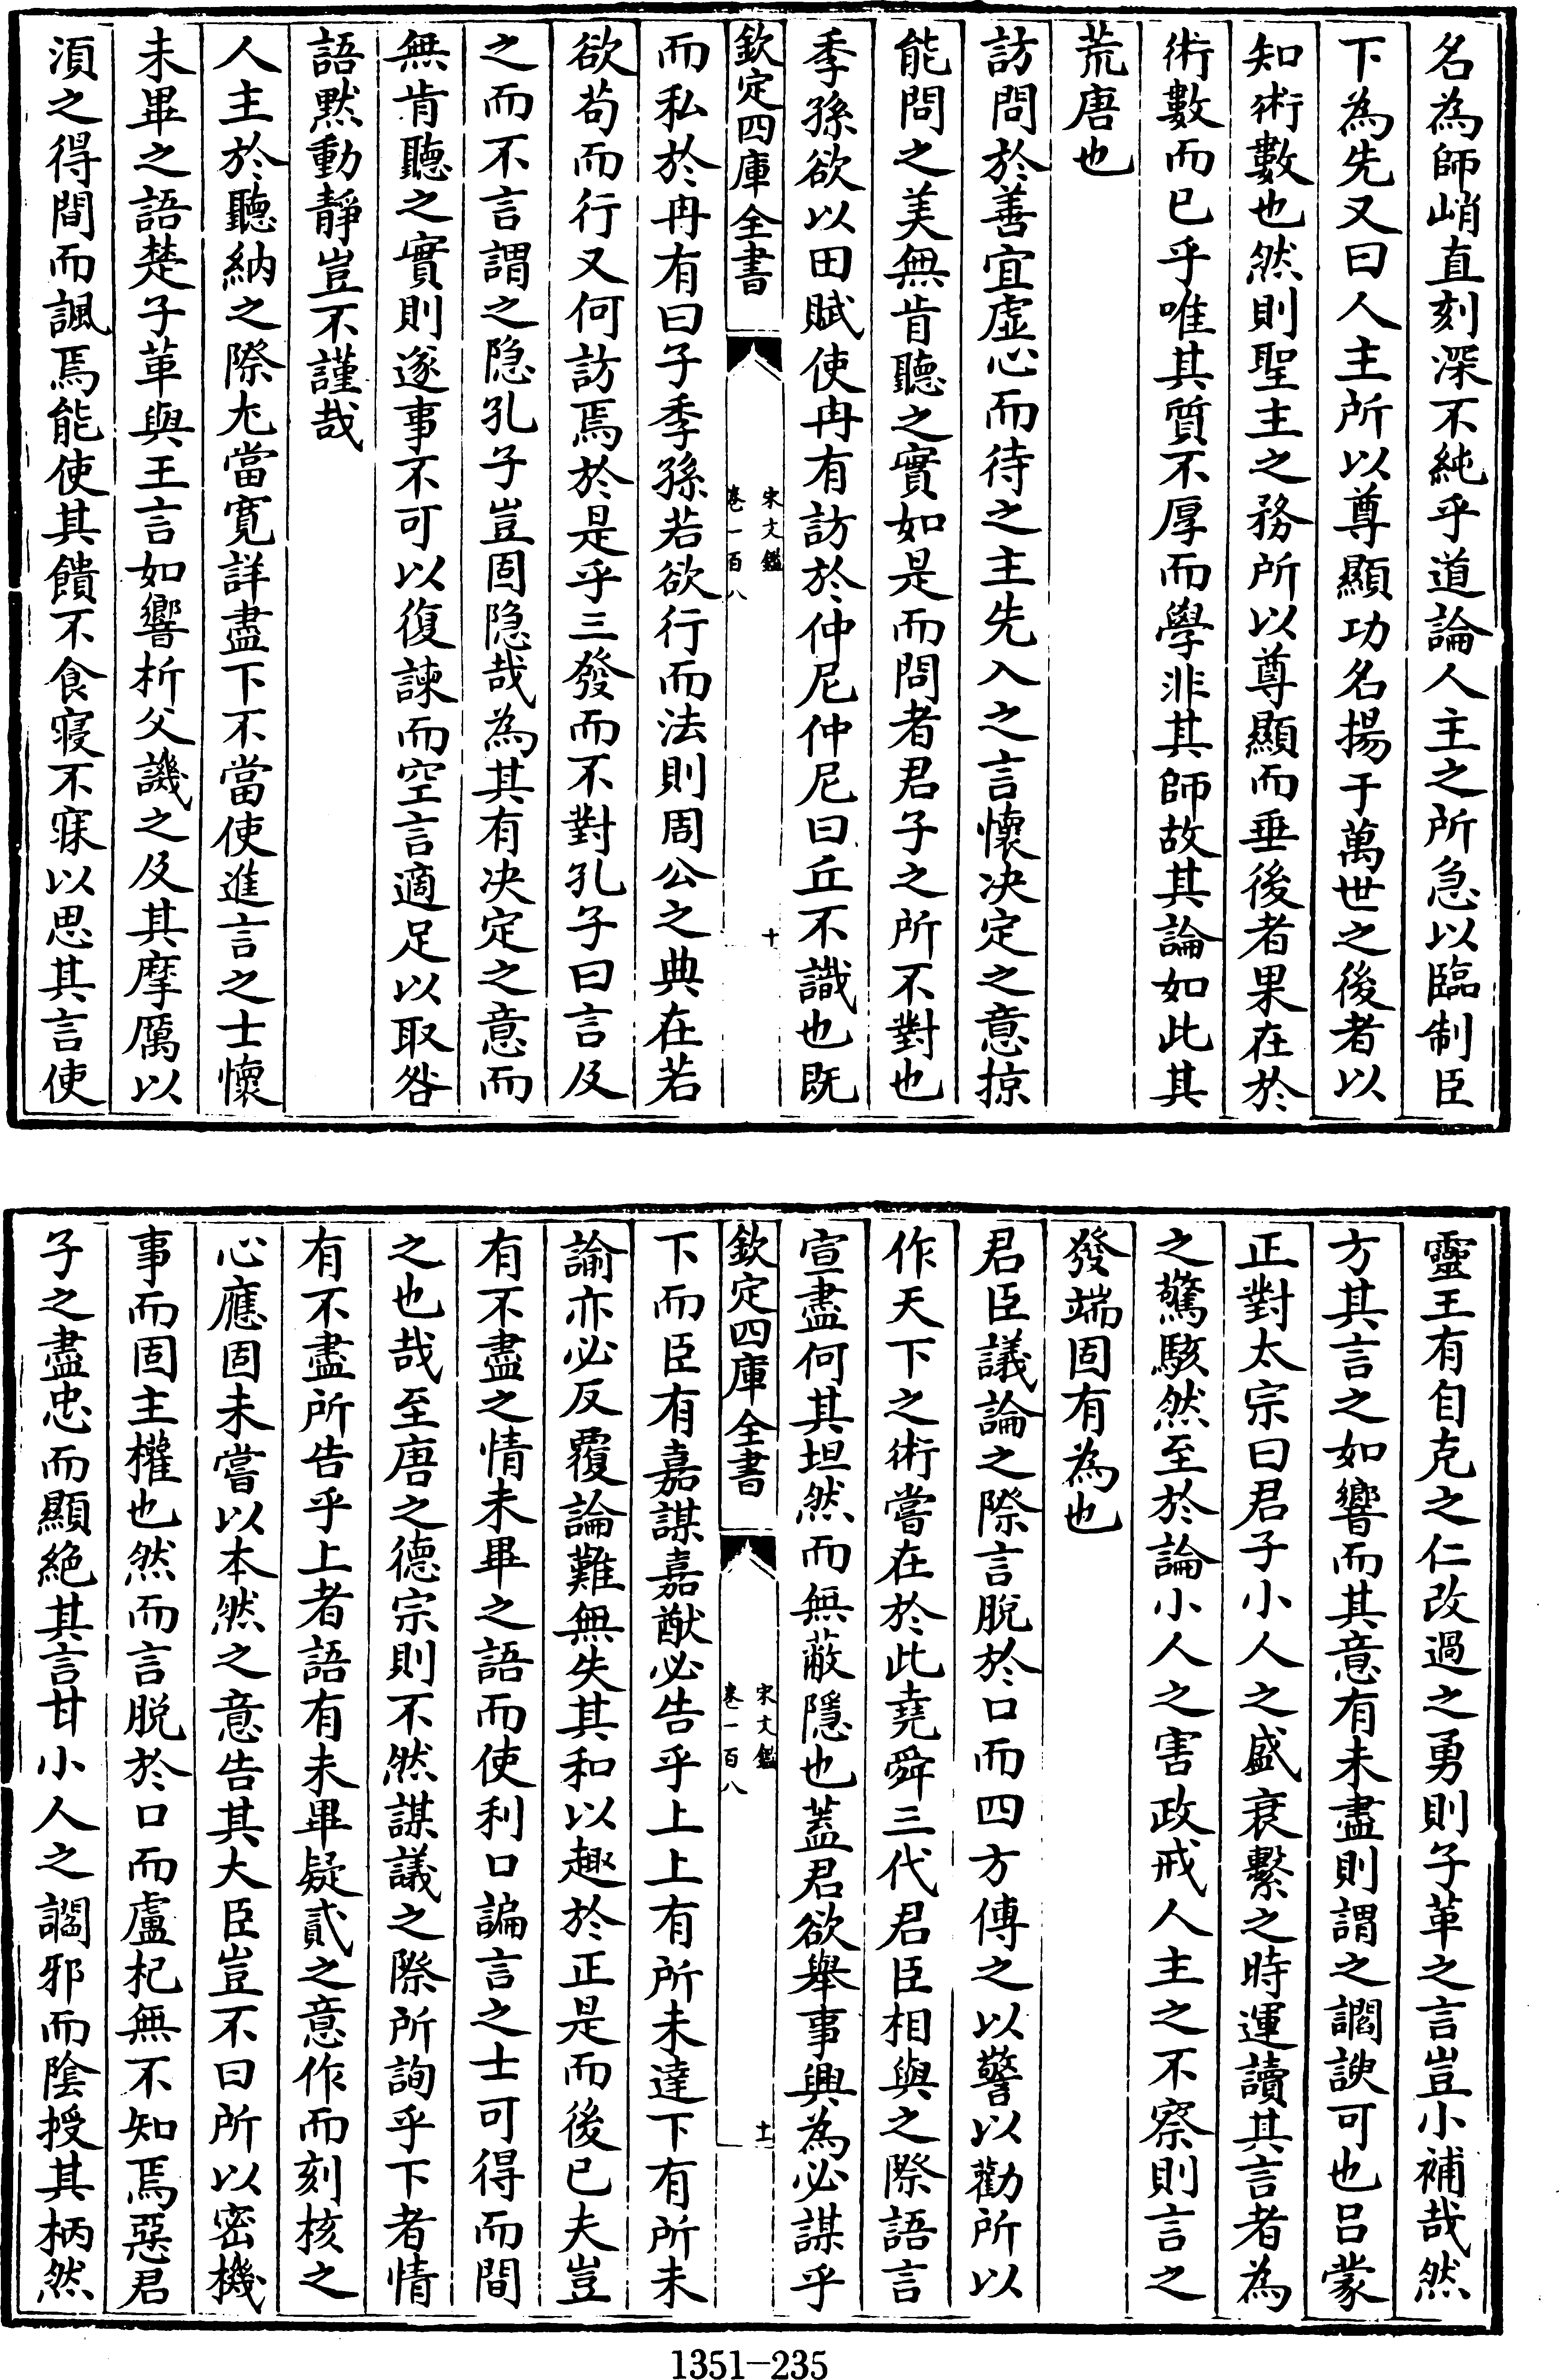 名為師峭直刻深不純乎道論人主之所急以臨制臣
下為先又曰人主所以尊顯功名揚于萬世之後者以
知術數也然則聖主之務所以尊顯而垂後者果在於
術數而已乎唯其質不厚而學非其師故其論如此其
荒唐也
訪問於善宜虛心而待之主先入之言懷決定之意掠
能問之美無肯聽之實如是而問者君子之所不對也
季孫欲以田賦使冉有訪於仲尼仲尼曰丘不識也既
欽定四庫全書
宋文鑑
卷一百八
十
而私於冉有曰子季孫若欲行而法則周公之典在若
欲苟而行又何訪焉於是乎三發而不對孔子曰言及
之而不言謂之隐孔子豈固隐哉為其有决定之意而
無肯聽之實則遂事不可以復諫而空言適足以取咎
語黙動靜豈不謹哉
人主於聽納之際尢當寛詳盡下不當使進言之士懷
未畢之語楚子革與王言如響析父譏之及其摩厲以
湏之得間而諷焉能使其饋不食寝不寐以思其言使
靈王有自克之仁改過之勇則子革之言豈小補哉然
方其言之如響而其意有未盡則謂之讇諛可也吕蒙
正對太宗曰君子小人之盛衰繫之時運讀其言者為
之驚駭然至於論小人之害政戒人主之不察則言之
發端固有為也
君臣議論之際言脫於口而四方傳之以警以勸所以
作天下之術嘗在於此堯舜三代君臣相與之際語言
宣盡何其坦然而無蔽隱也蓋君欲舉事興為必謀乎
欽定四庫全書
宋文鑑
卷一百八
十一
下而臣有嘉謀嘉猷必告乎上上有所未達下有所未
諭亦必反覆論難無失其和以趣於正是而後已夫豈
有不盡之情未畢之語而使利口諞言之士可得而間
之也哉至唐之德宗則不然謀議之際所詢乎下者情
有不盡所告乎上者語有未畢疑貳之意作而刻核之
心應固未嘗以本然之意告其大臣豈不曰所以密機
事而固主權也然而言脱於口而盧杞無不知焉惡君
子之盡忠而顯絶其言甘小人之讇邪而陰授其柄然
1351-235